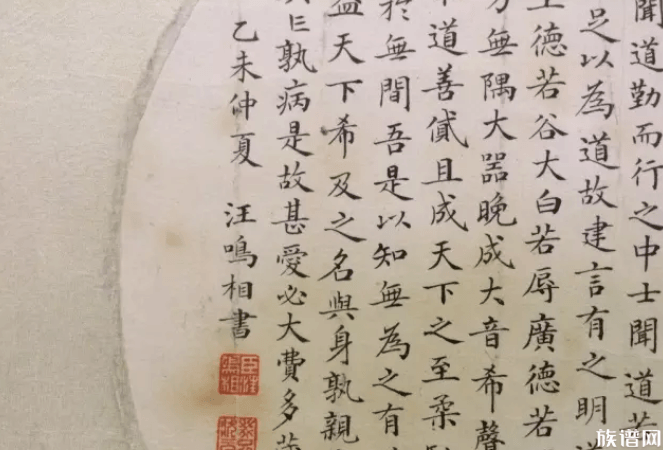 聞道勤而行之中士聞道若
足以為道故建言有之明道
上德若谷大白若辱廣德若
方無隅大器晚成大音希聲
道善貸且成天下之至柔
於無間吾是以知無為之有
益天下希及之名與身孰親
亡孰病是故甚愛必大費多
乙未仲夏 汪鳴相書
臣汪鳴相
族谱网